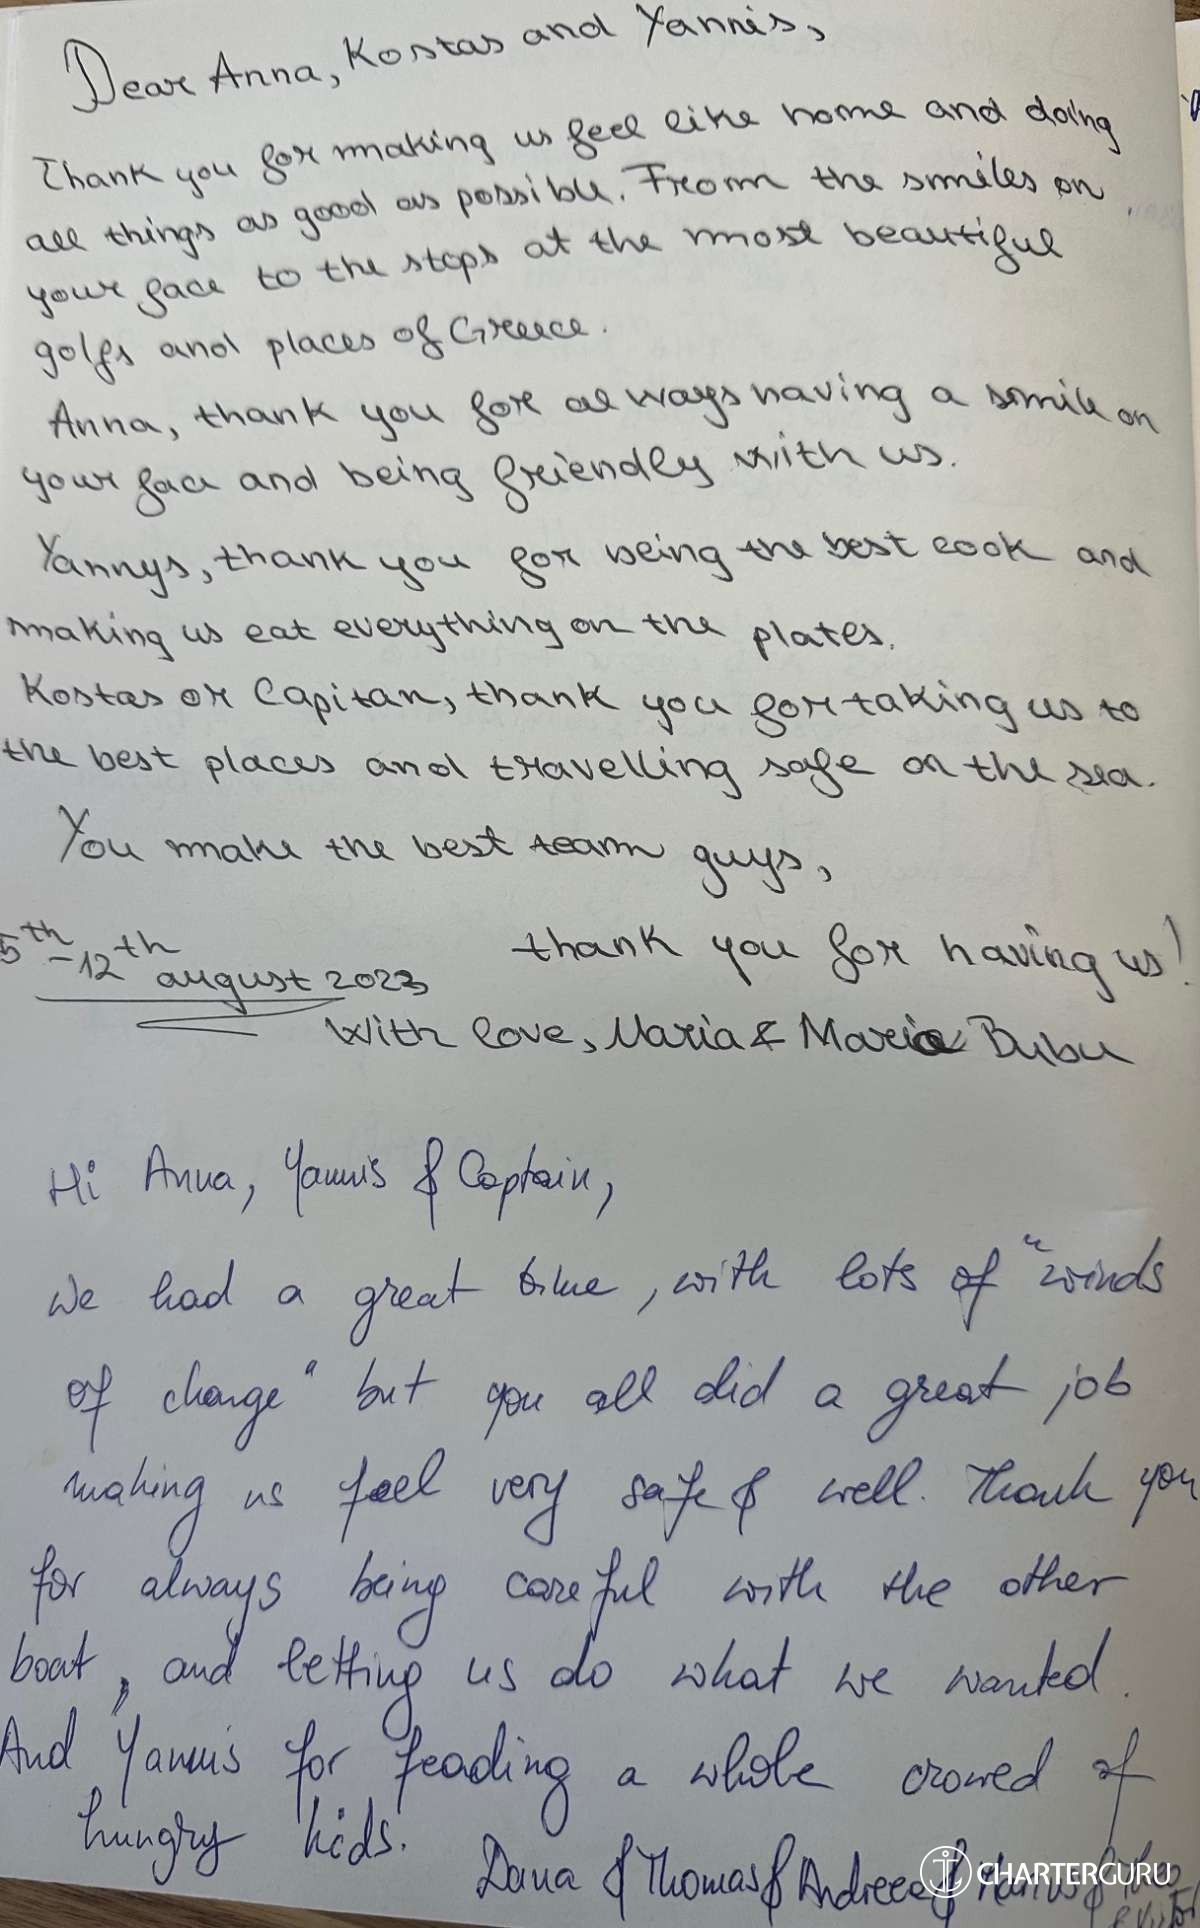 Dear Anna, Kostas and Yannis,
Thank you for making us feel like home and doing
all things as good as possible. From the smiles on
your face to the stops at the most beautiful
golfs and places of Greece.
Anna, thank you for always having a smile on
your face and being friendly with us.
Yannys, thank you for being the best cook and
making us eat everything on the plates.
Kostas or Capitan, thank you for taking us to
the best places and travelling safe on the sea.
You make the best team guys,
thank you for having us!
5th-12th august 2023
With love, Maria & Maria Bubu
Hi Anna, Yannis & Captain,
We had a great time, with lots of "winds
of change" but you all did a great job
making us feel very safe & well. Thank you
for always being careful with the other
boat, and letting us do what we wanted.
And Yannis for feading a whole crowed of
hungry kids.
Dana & Thomas & Andreea & Marius &
CHARTERGURU